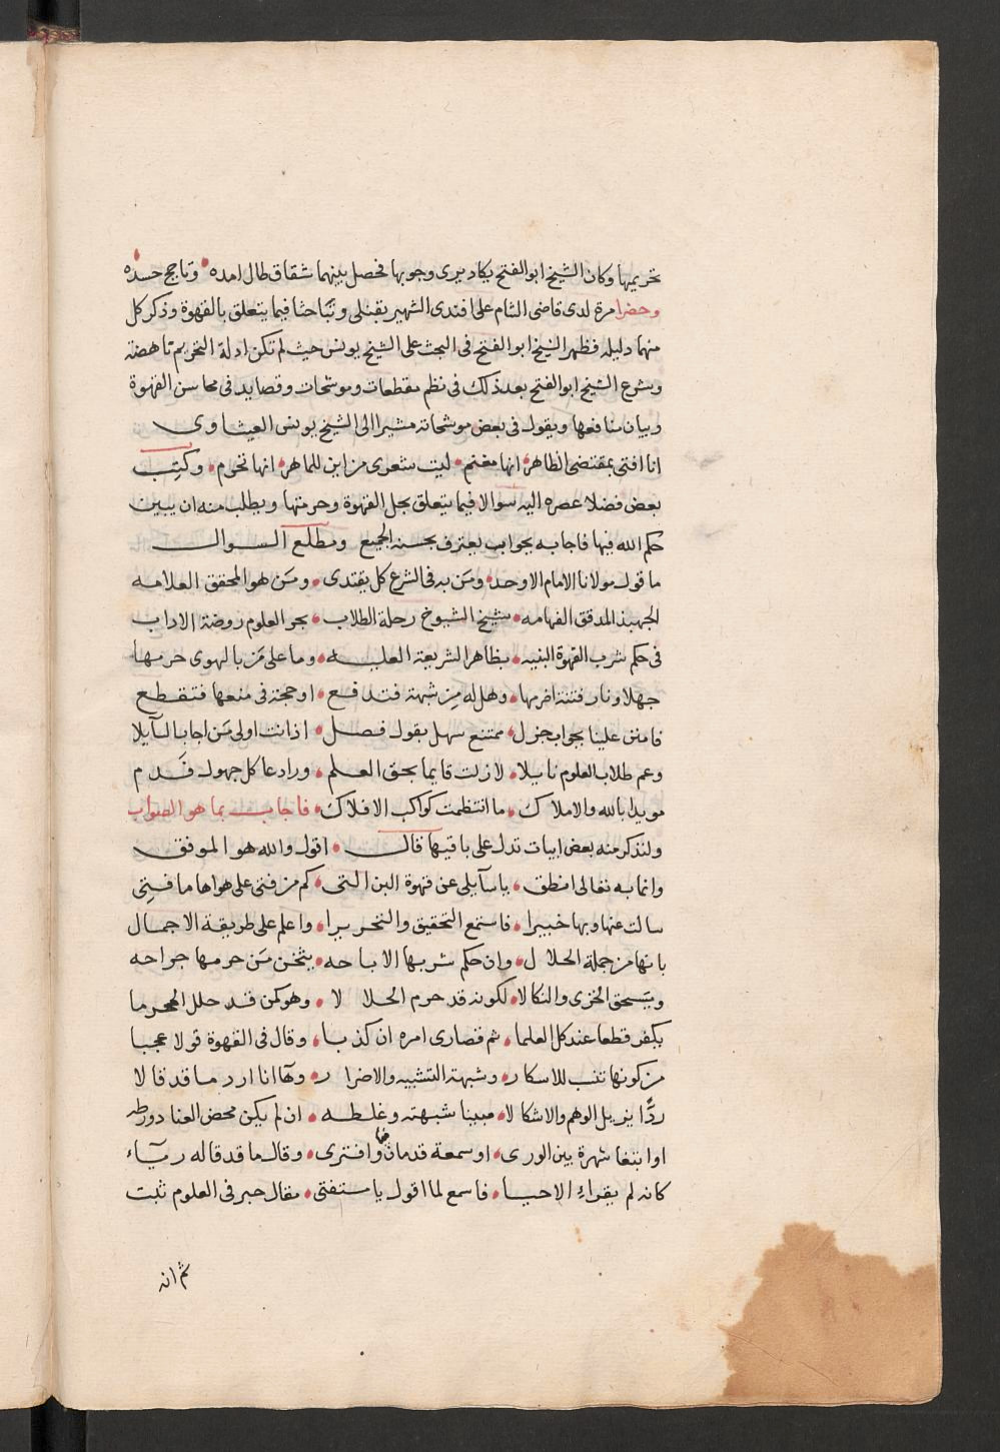 تحريمها وكان الشيخ ابو الفتح يكاد يرى وجوبها فحصل بينهما شقاق طال امده وتاجج حسده
وحضرا مرة لدى قاضى الشام على افندى الشهير بقنلى وتباحثا فيما يتعلق بالقهوة وذكر كل
منهما دليله فظهر الشيخ ابو الفتح فى البحث على الشيخ يونس حيث لم تكن ادلة التحريم ناهضة
وشرع الشيخ ابو الفتح بعد ذلك فى نظم مقطعات وموشحات وقصايد فى محاسن القهوة
وبيان منافعها ويقول فى بعض موشحاته مشيرا الى الشيخ يونس العيثاوى
انا افتى بمقتضى الظاهر انها مغنم ليت شعرى من اين للماهر انها تحرم وكتب
بعض فضلا عصره اليه سوالا فيما يتعلق بحل القهوة وحرمتها ويطلب منه ان يبين
حكم الله فيها فاجابه بجواب يعترف بحسنه الجميع ومطلع السوال
ما قول مولانا الامام الاوحد ومن به فى الشرع كل يقتدى ومن هو المحقق العلامه
الجهبذ المدقق الفهامه شيخ الشيوخ رحلة الطلاب بحر العلوم روضة الاداب
فى حكم شرب القهوة البنيه بظاهر الشريعة العليه وما على من بالهوى حرمها
جهلا ونار فتنة اضرمها وهل له من شبهة فتدفع او حجة فى منعها فتقطع
فامنن علينا بجواب جزل ممتنع سهل بقول فصل اذ انت اولى من اجاب السآيلا
وعم طلاب العلوم نايلا لازلت قايما بحق العلم ورادعا كل جهول فدم
مويدا بالله والاملاك ما انتظمت كواكب الافلاك فاجاب بما هو الصواب
ولنذكر منه بعض ابيات تدل على باقيها قال اقول والله هو الموفق
وانما به تعالى انطق ياسآيلى عن قهوة البن التى كم من فتى على هواها ما فتى
سالت عنها وبها خبيرا فاستمع التحقيق والتحريرا واعلم على طريقة الاجمال
بانها من جملة الحلال وان حكم شربها الاباحه يثخن من حرمها جراحه
ويستحق الخزى والنكالا لكونه قد حرم الحلالا وهو كمن قد حلل المحرما
يكفر قطعا عند كل العلما ثم قصارى امره ان كذبا وقال فى القهوة قولا عجبا
من كونها تنسب للاسكار وشبهة التشبيه والاضرار وهآانا ارد ما قد قالا
ردًا يزيل الوهم والاشكالا مبينا شبهته وغلطه ان لم يكن محض العناد ورطه
او ابتغا شهرة بين الورى او سمعة قد مانها وافترى وقال ما قد قاله ريآء
كانه لم يقراء الاحيا فاسمع لما اقول يا مستفتى مقال حبر فى العلوم ثبت
ثم انه